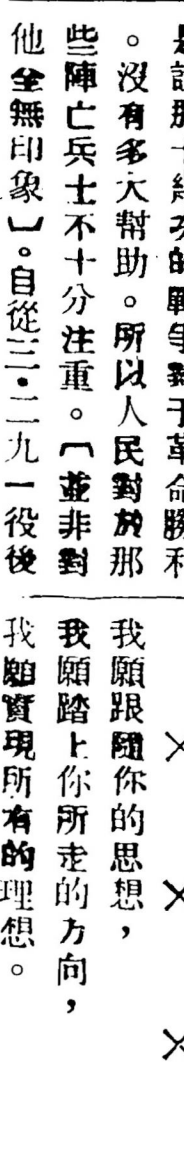 的戰爭對于革命勝利
。沒有多大幫助。所以人民對於那
些陣亡兵士不十分注重。〔並非對
他全無印象〕。自從三・二九一役後
× × ×
我願跟隨你的思想，
我願踏上你所走的方向，
我願實現所有的理想。